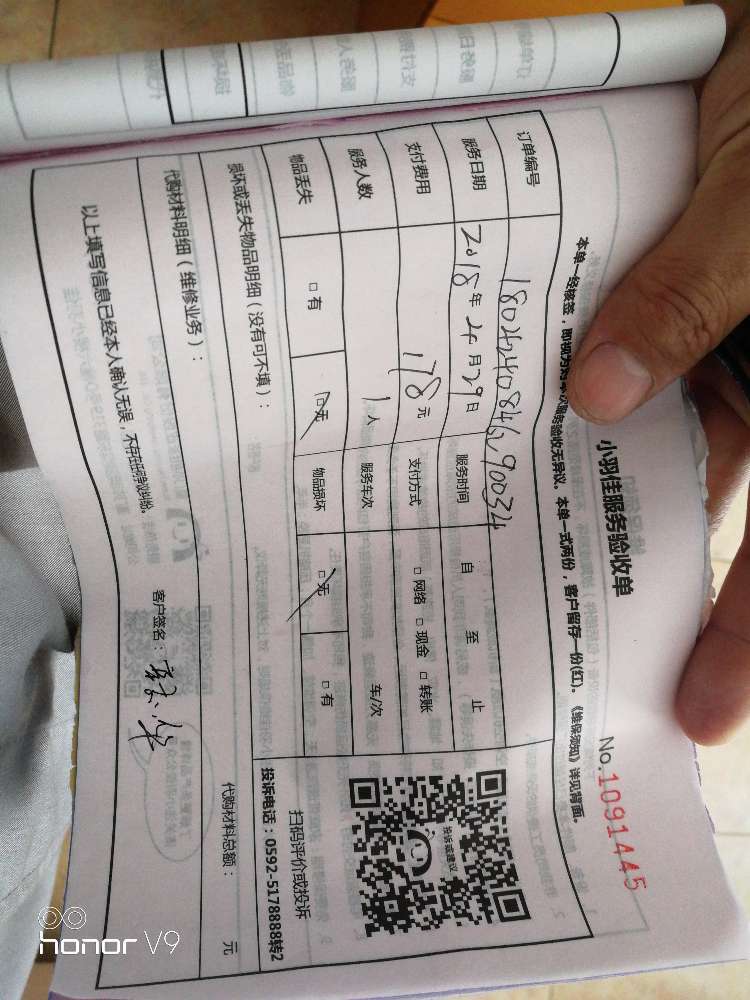 小羽佳服务验收单
No.1091445
本单一经核签，即视为对本次服务验收无异议。本单一式两份，客户留存一份(红)。《维保须知》详见背面。
订单编号
服务日期 2018年 月29日 服务时间 自 至 止
支付费用 178元 支付方式 □网络 □现金 □转账
服务人数 1人 服务车次 车/次
物品丢失 □有 □无 物品损坏 □无 □有
投诉或建议
扫码评价或投诉
投诉电话：0592-5178888转2
损坏或丢失物品明细（没有可不填）：
代购材料明细（维修业务）：
代购材料总额： 元
以上填写信息已经本人确认无误，不存在任何争议纠纷。
客户签名：
honor V9